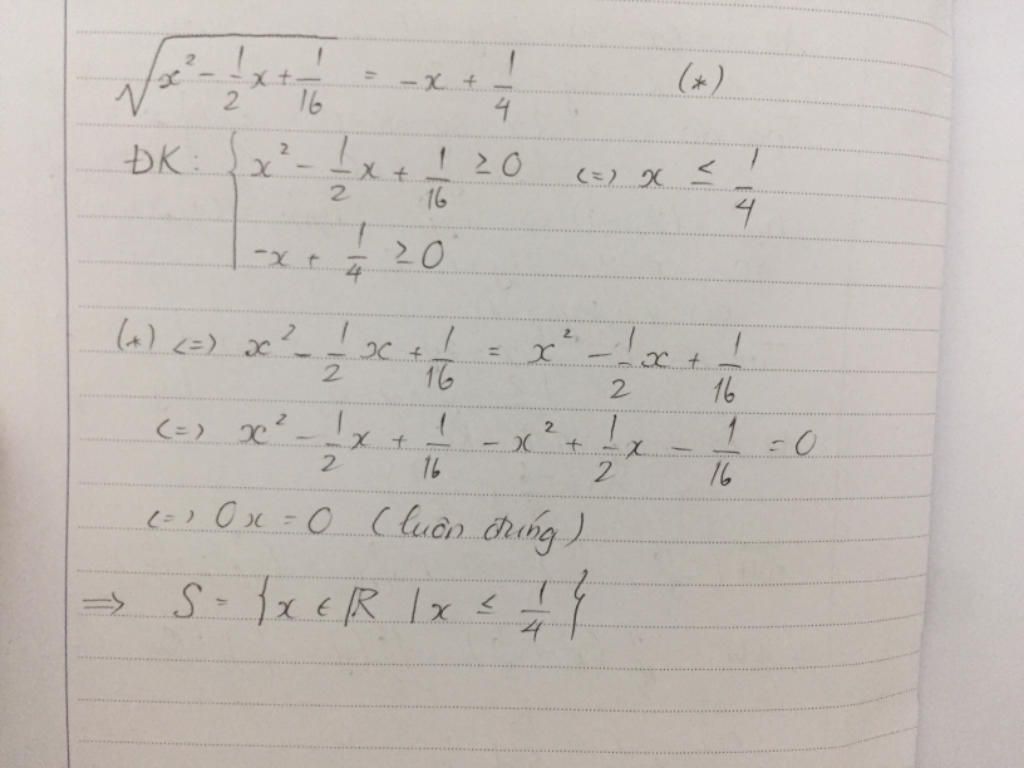 √(x² - 1/2 x + 1/16) = -x + 1/4 (*)
ĐK: { x² - 1/2 x + 1/16 ≥ 0 <=> x ≤ 1/4
-x + 1/4 ≥ 0
(*) <=> x² - 1/2 x + 1/16 = x² - 1/2 x + 1/16
<=> x² - 1/2 x + 1/16 - x² + 1/2 x - 1/16 = 0
<=> 0x = 0 (luôn đúng)
=> S = {x ∈ R | x ≤ 1/4}